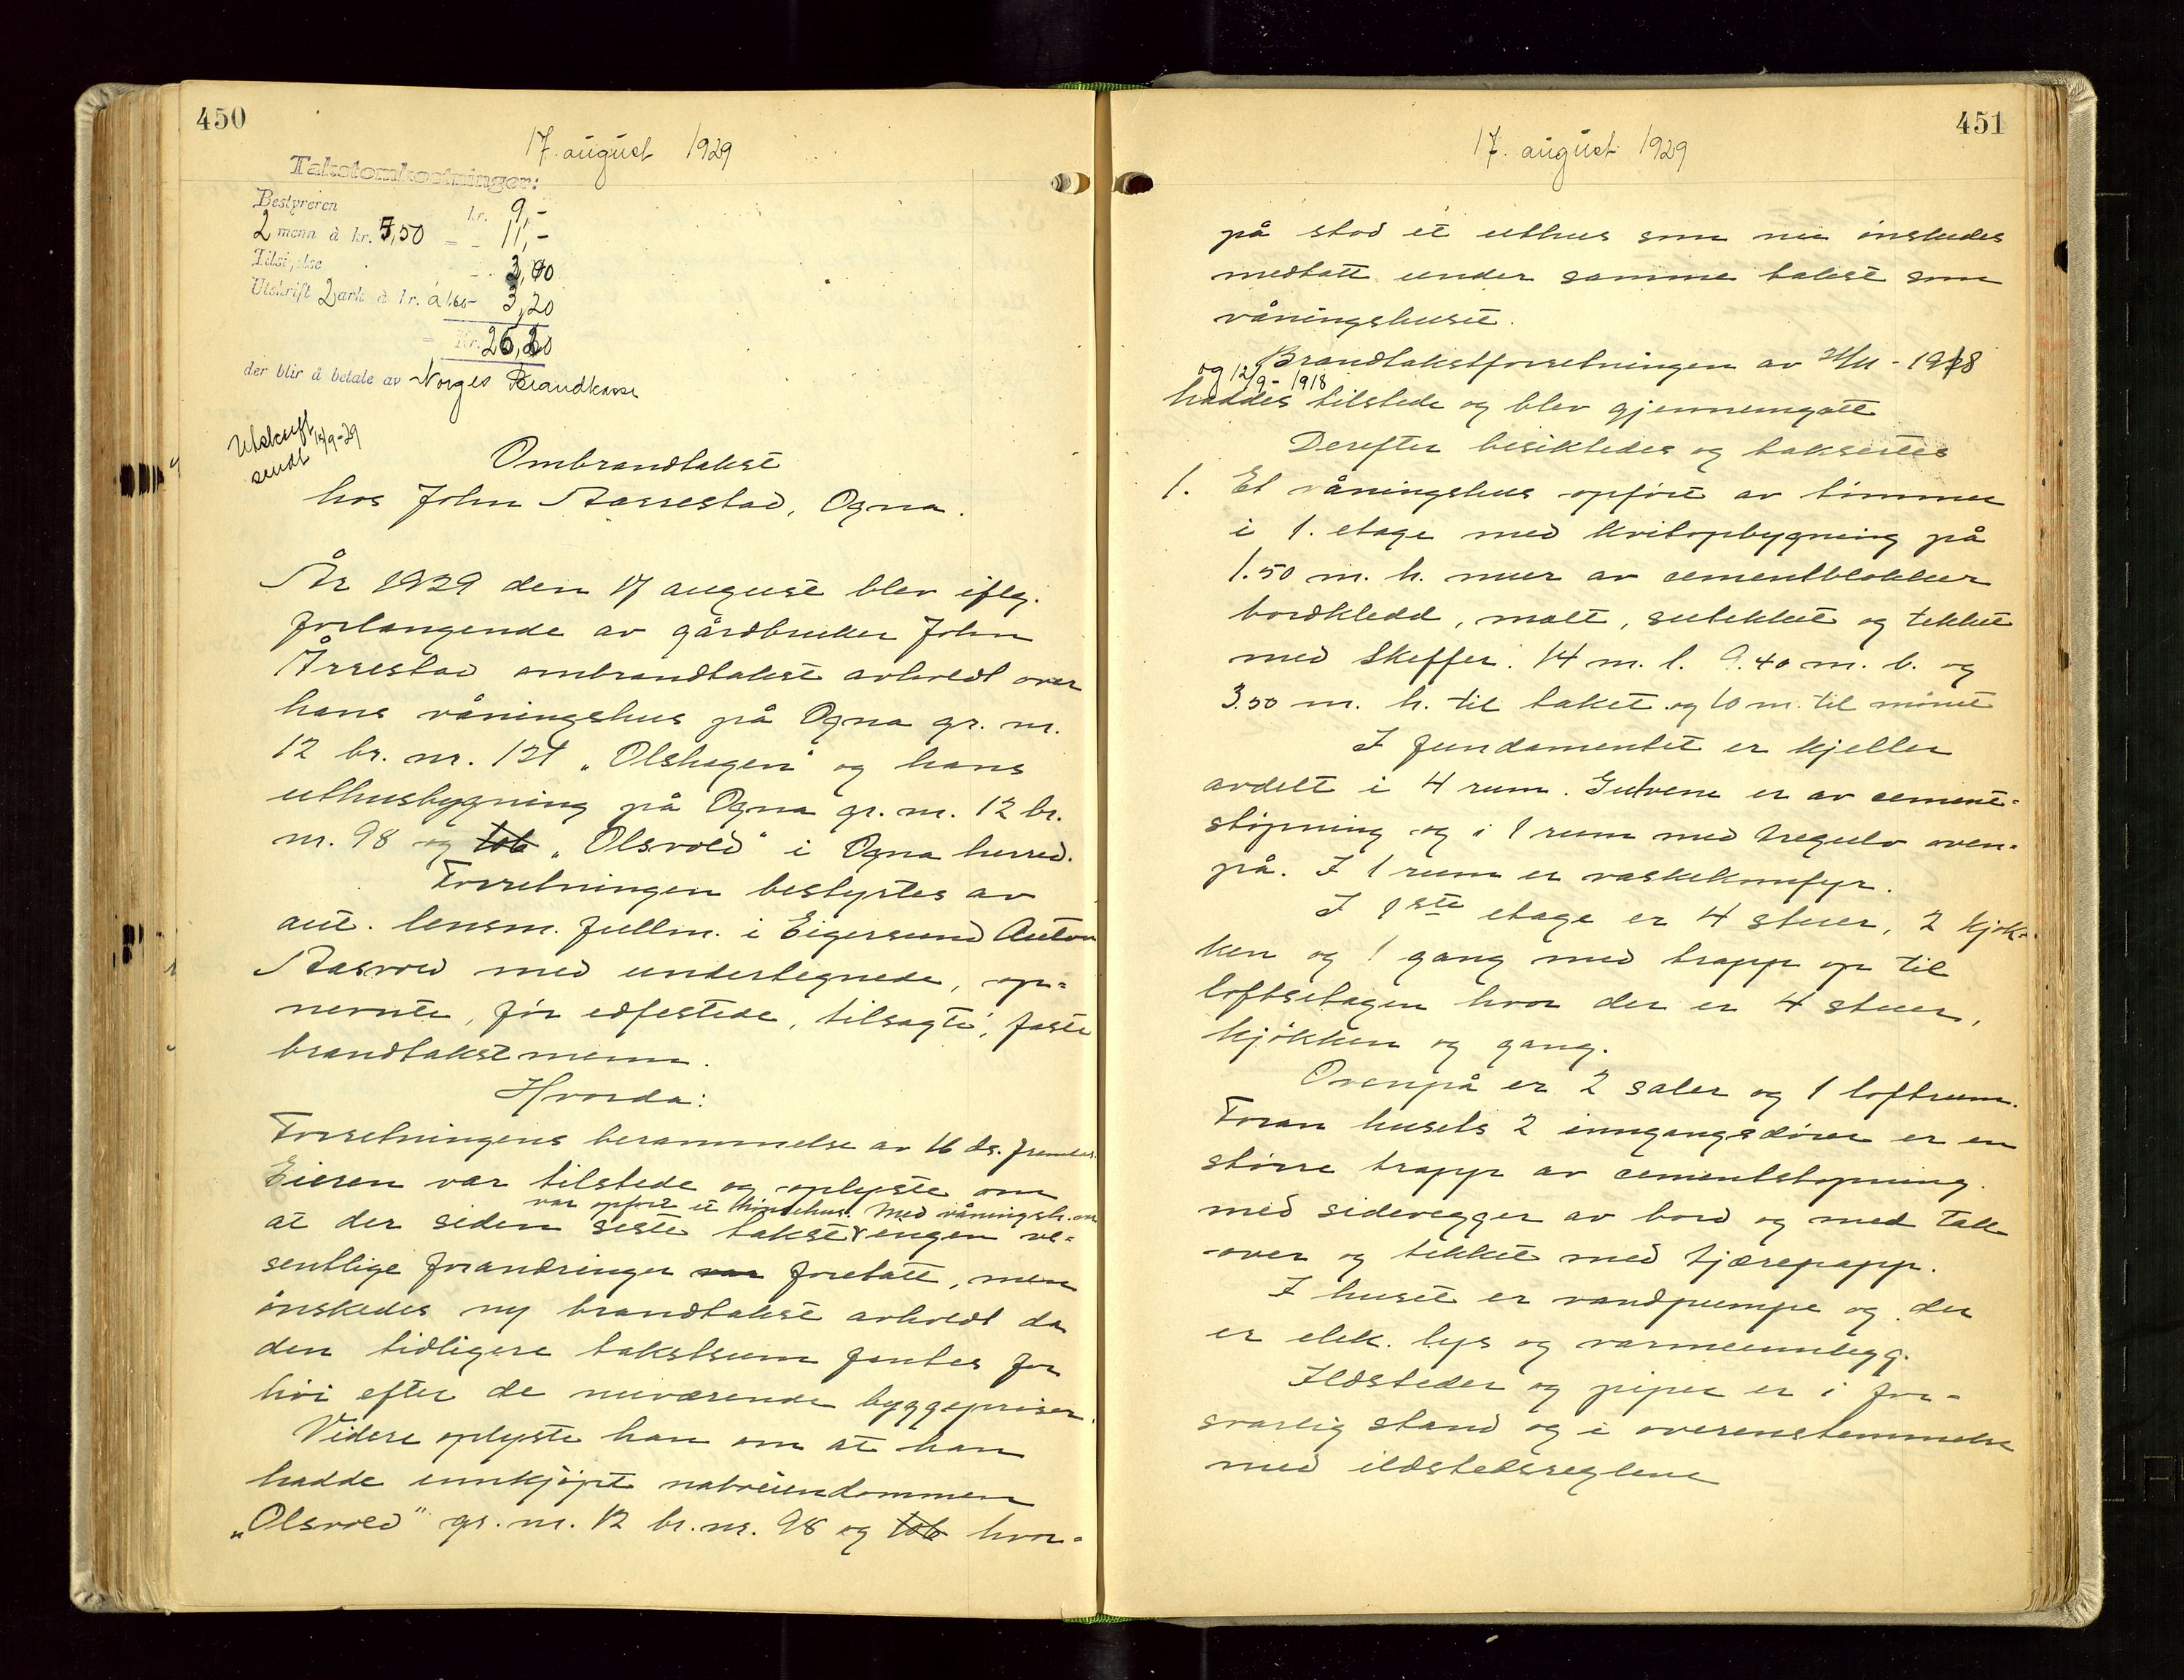 450
17. august 1929
Takstomkostninger:
Bestyreren kr. 9,-
2 menn à kr. 5,50 = - 11,-
Tilsigelse - 3,00
Utskrift 2 ark à kr. à 1.60 - 3,20
= Kr. 26,20
der blir å betale av Norges Brandkasse
Utskrift 12/9-29
sendt
Ombrandtakst
hos John Aarrestad, Ogna.
År 1929 den 17 august blev iflg.
forlangende av gårdbruker John
Årrestad ombrandtakst avholdt over
hans våningshus på Ogna gr. nr.
12 br. nr. 121 „Olshagen" og hans
uthusbygning på Ogna gr. nr. 12 br.
nr. 98 og 106 „Olsvold" i Ogna herred.
Forretningen bestyrtes av
aut. lensm. fullm. i Eigersund Anton
Aasvold med undertegnede, op-
nevnte, før edfestede, tilsagte, faste
brandtakstmenn.
Hvorda:
Forretningens berammelse av 16 ds. fremlas.
Eieren var tilstede og oplyste om
var opført et hönsehus. Med våningsh. var
at der siden siste takst engen ve-
sentlige forandringer var foretatt, men
ønskedes ny brandtakst avholdt da
den tidligere takstsum fantes for
høi efter de nuværende byggepriser.
Videre oplyste han om at han
hadde innkjøpt naboeiendommen
„Olsvold" gr. nr. 12 br. nr. 98 og 106 hvor-
451
17. august 1929
på stod et uthus som nu ønskedes
medtatt under samme takst som
våningshuset.
Brandtakstforretningen av 21/11 - 1918
og 12/9 - 1918
haddes tilstede og blev gjennemgått
Derefter besiktedes og taksertes
1. Et våningshus opført av tømmer
i 1. etage med kvitopbygning på
1.50 m. h. mur av cementblokker
bordkledd, malt, sutekket og tekket
med skiffer. 14 m. l. 9.40 m. b. og
3.50 m. h. til taket og 10 m. til mønet
I fundamentet er kjeller
avdelt i 4 rum. Gulvene er av cement-
støpning og i 1 rum med tregulv oven-
på. I 1 rum er vaskekomfyr.
I 1ste etage er 4 stuer, 2 kjøk-
ken og 1 gang med trapp op til
loftsetagen hvor der er 4 stuer,
kjøkken og gang.
Ovenpå er 2 saler og 1 loftrum.
Foran husets 2 inngangsdører er en
større trapp av cementstøpning
med sidevegger av bord og med tak
over og tekket med tjærepapp.
I huset er vandpumpe og der
er elek. lys og varmeinnlegg.
Ildsteder og piper er i for-
svarlig stand og i overenstemmelse
med ildstedsreglene